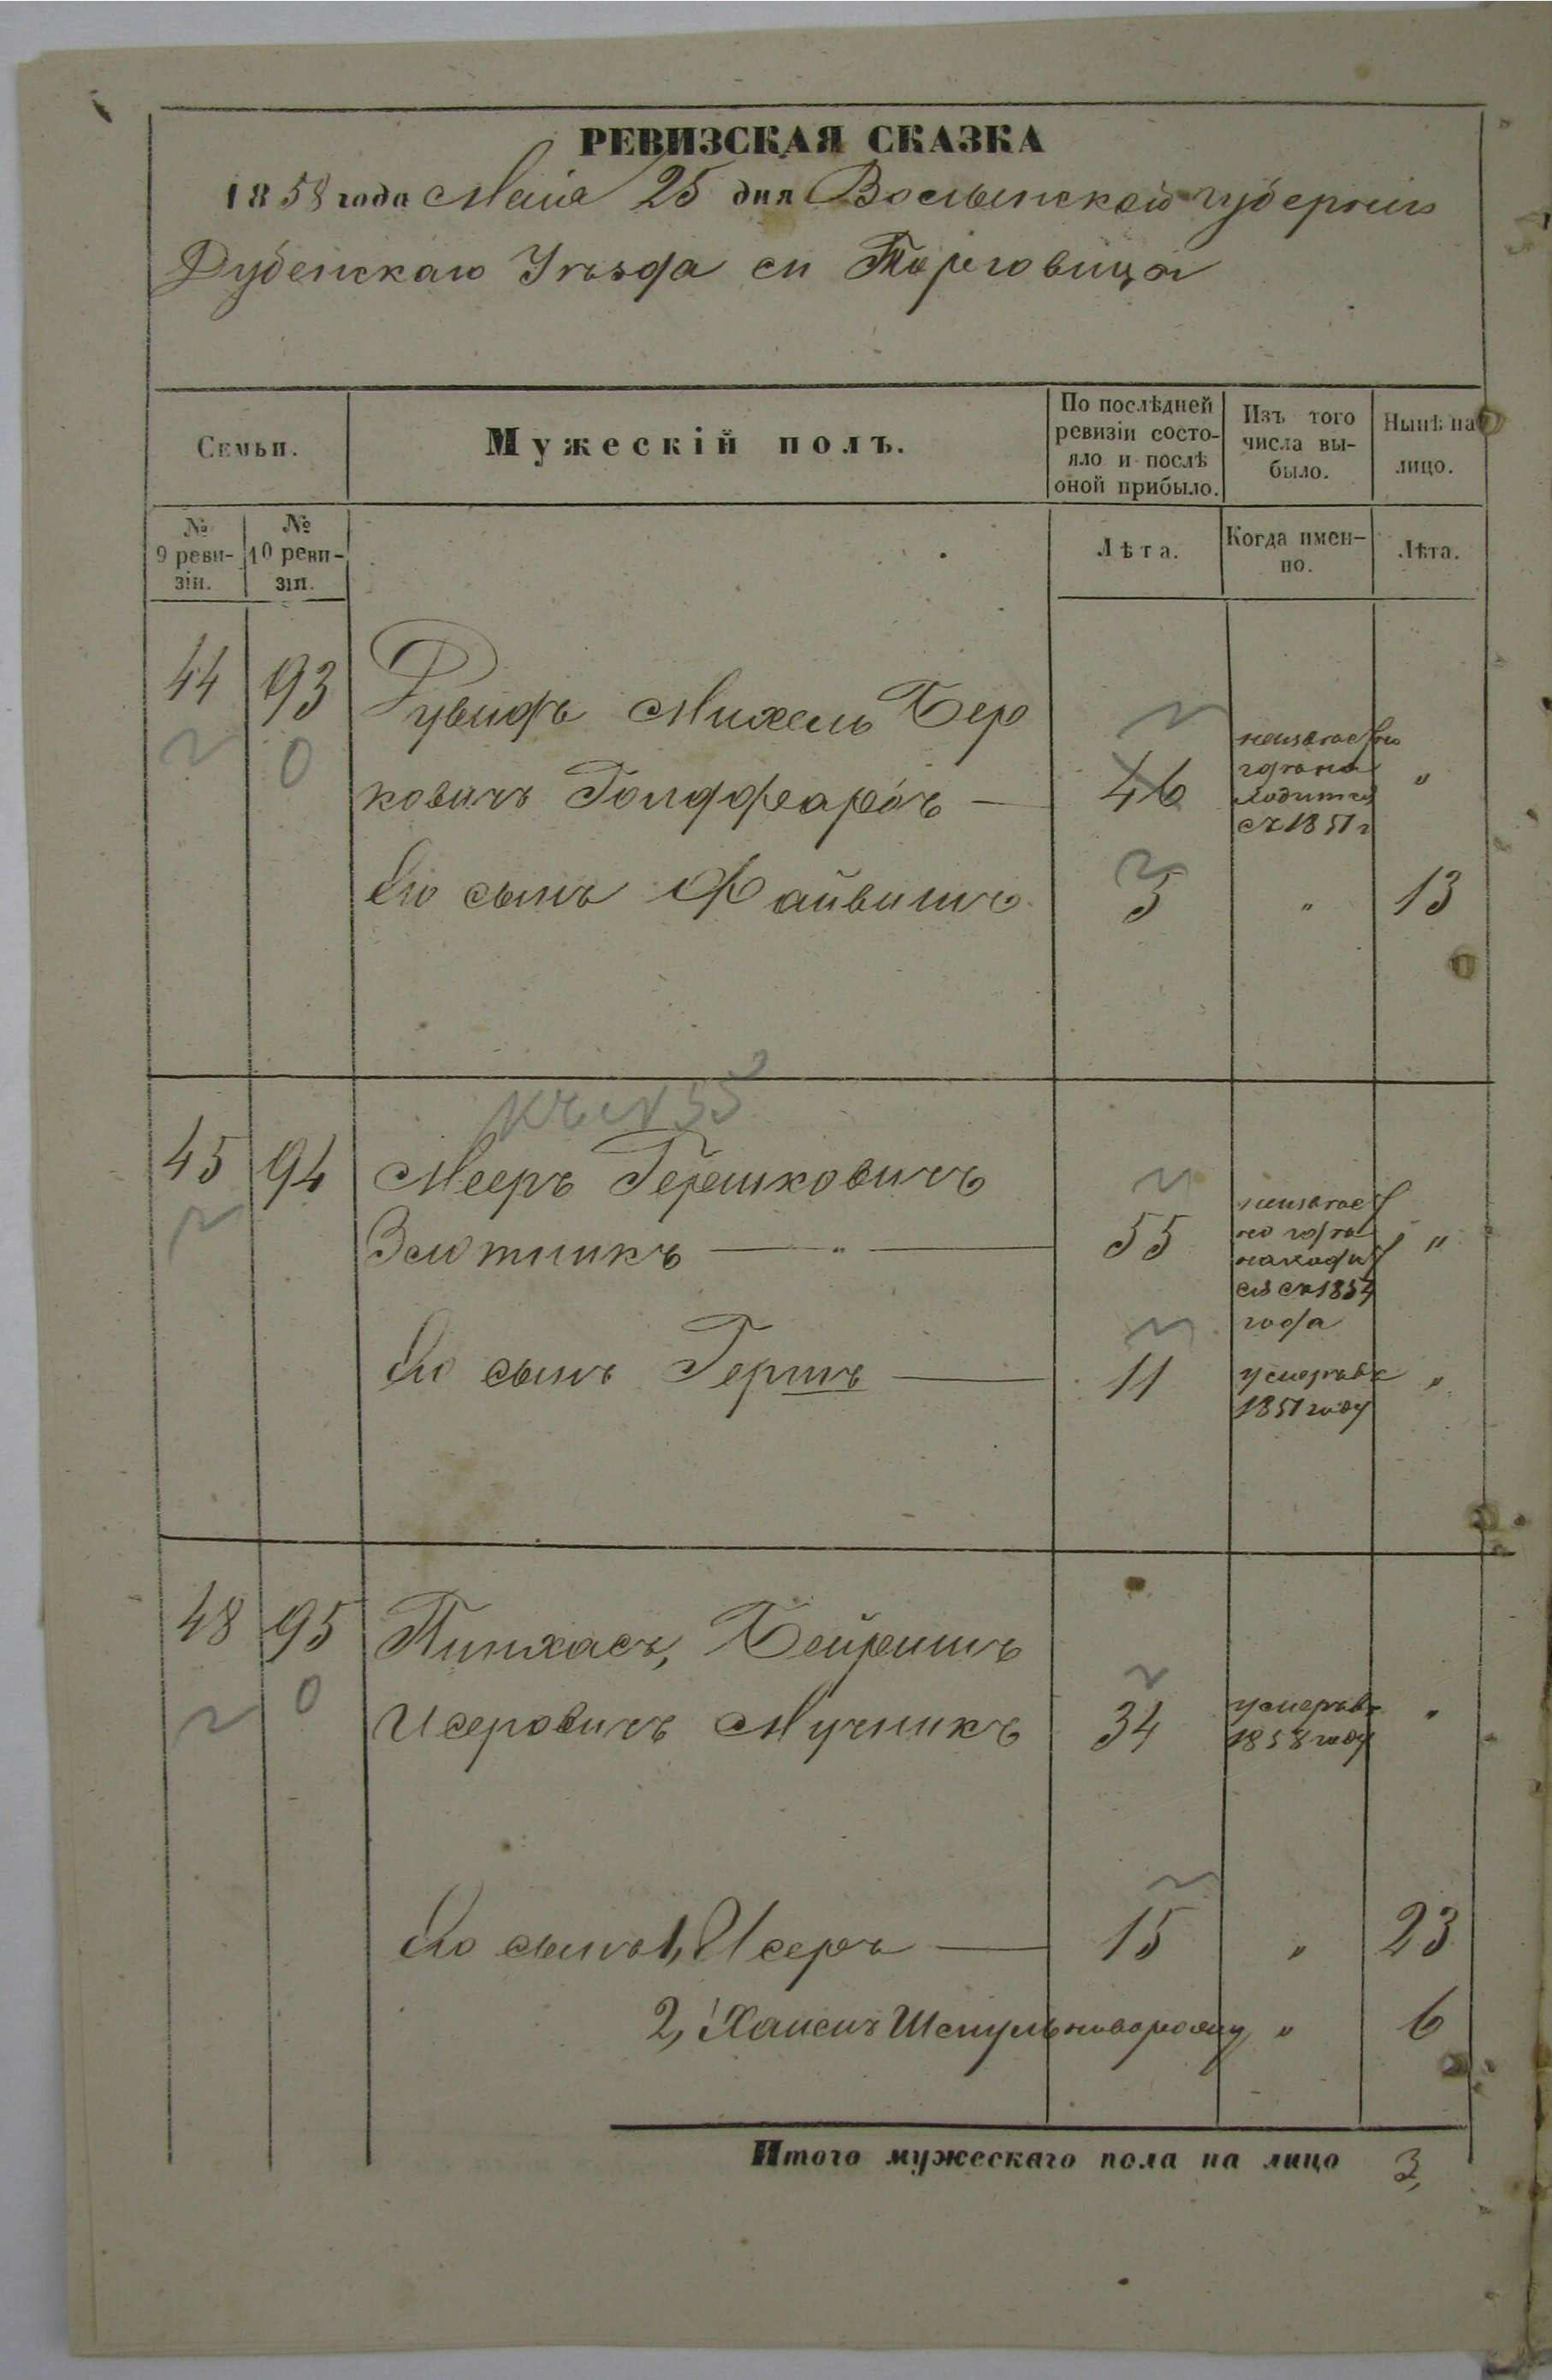 РЕВИЗСКАЯ СКАЗКА
1858 года Маія 25 дня Волынской губерніи
Дубенскаго Уѣзда м Торговица
Семьи.
Мужескій полъ.
По послѣдней ревизіи состо-
яло и послѣ
оной прибыло.
Изъ того
числа вы-
было.
Нынѣ на
лицо.
№
9 реви-
зіи.
№
10 реви-
зіи.
Лѣта.
Когда имен-
но.
Лѣта.
44 93 Рувинъ Михель Бер
ковичъ — 46 неизвѣстно
гдѣ на
ходится
съ 1851 г "
Его сынъ Файвишъ 5 " 13
къ № 55
45 94 Мееръ Гершковичъ
Злотникъ — " — 55 неизвѣст
но гдѣ
находит
ся съ 1854
года "
Его сынъ Гершъ — 11 умеръ въ
1851 году "
48 95 Пинхасъ, Бейришъ
Исеровичъ Мучникъ 34 умеръ въ
1858 году "
0
0
Его сынъ 1, Исеръ — 15 " 23
2, Хаимъ Шмуль новорожд " 6
Итого мужескаго пола на лицо 3,